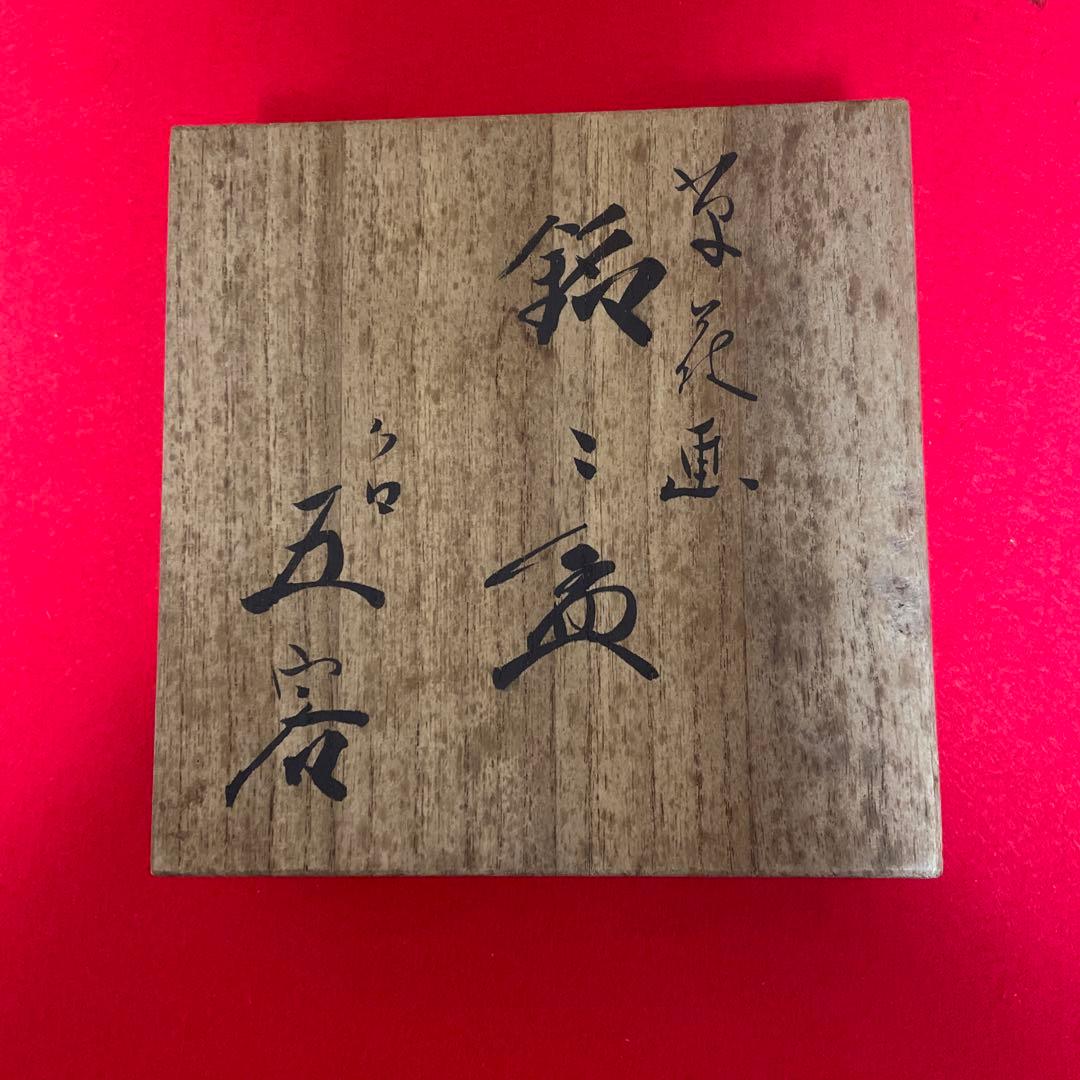 草花画
銘々盆
五客